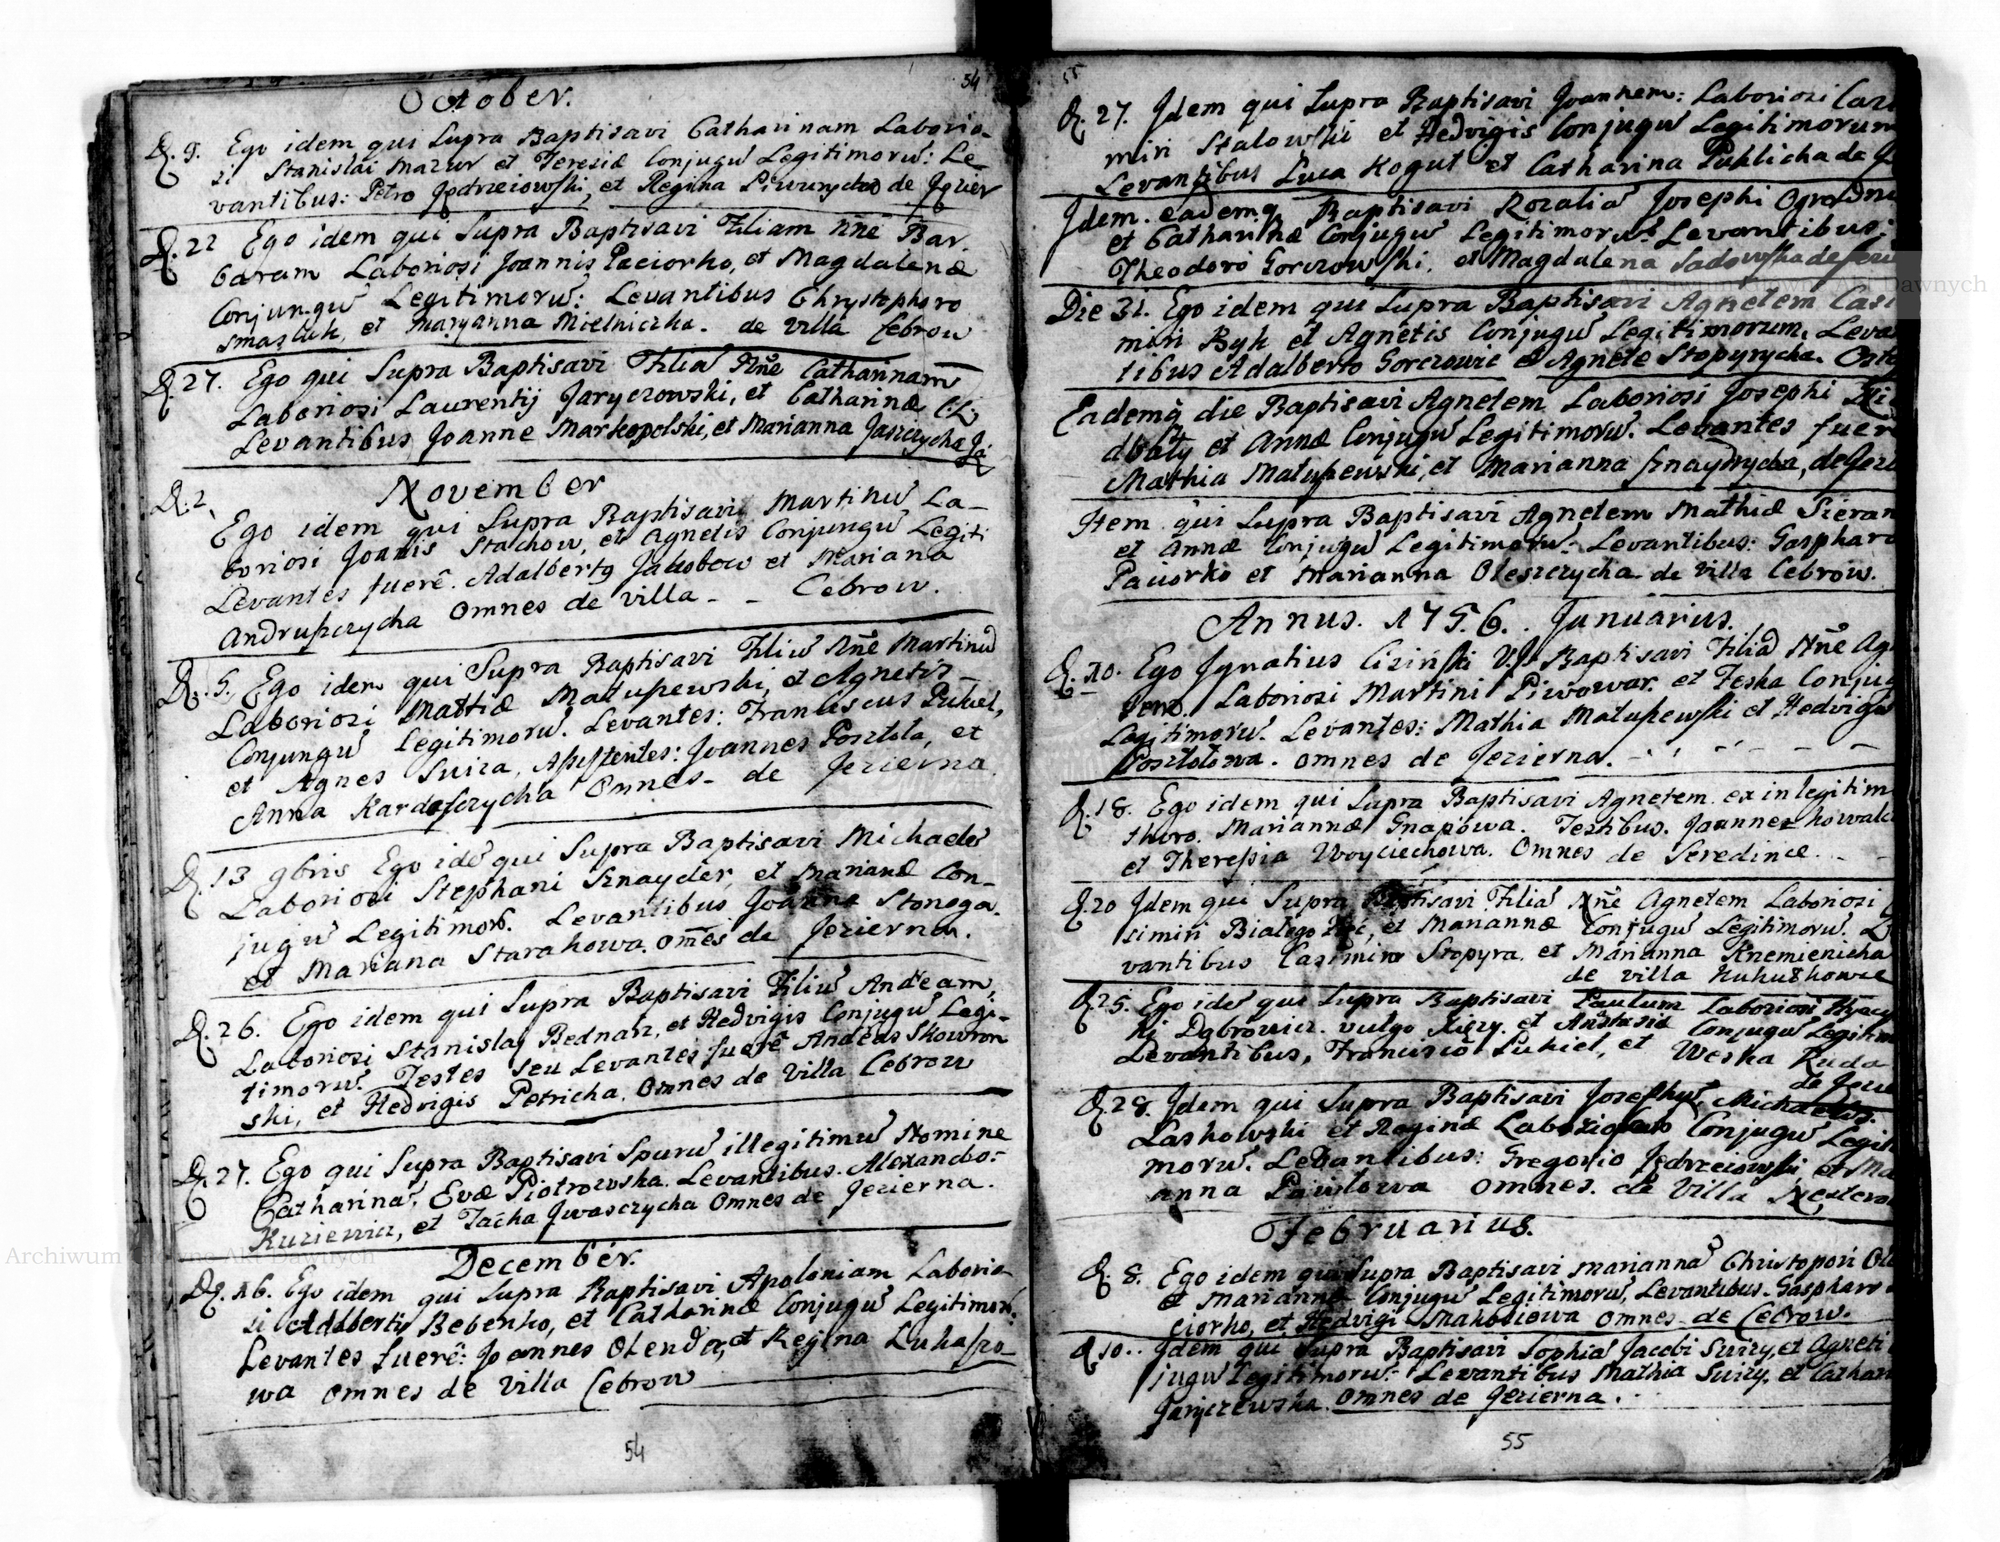 54
October.
D. 9. Ego idem qui Supra Baptisavi Catharinam Laborio-
si Stanislai Mazur et Teresiæ Conjugũ Legitimorũ: Le-
vantibus: Petro Jedrzeiowski, et Regina de Jezier
D. 22 Ego idem qui Supra Baptisavi Filiam Nñe Bar-
baram Laboriosi Joannis Paciorko, et Magdalenæ
Conjungũ Legitimorũ: Levantibus Chrystophoro
Smaszluk, et Maryanna Mielniczka. de villa Cebrow
D. 27. Ego qui Supra Baptisavi Filiã Nñe Catharinam
Laboriosi Laurentij Jaryczowski, et Catharinæ C:L:
Levantibus Joanne Markopolski, et Marianna Jaszczycha
November
D. 2,
Ego idem qui Supra Baptisavi Martinũ La-
boriosi Joanis Stachow, et Agnetis Conjungũ Legiti
Levantes fuerẽ. Adalbertg Jakobow et Mariana
Andruszczycha omnes de villa - - Cebrow.
D. 5. Ego idem qui Supra Baptisavi Filiũ Nñe Martinũ
Laboriosi Mattiæ Matuszewski, et Agnetis
Conjungũ Legitimorũ. Levantes: Franciscus Pukiel,
et Agnes Suiza, Assistentes: Joannes Posztola, et
Anna Kardasczycha Omnes- de Jezierna.
D. 13 9bris Ego idẽ qui Supra Baptisavi Michaelẽ
Laboriosi Stephani Sznayder, et Marianæ Con-
jugũ Legitimorũ. Levantibus Joanne Stonoga.
et Mariana Starahowa. omẽs de Jezierna.
D. 26. Ego idem qui Supra Baptisavi Filiũ Andeam,
Laboriosi Stanislaj Bednarz, et Hedvigis Conjugũ Legi-
timorũ. Testes seu Levantes fuerẽ Andeas Skowron
ski, et Hedvigis Petricha. Omnes de Villa Cebrow
D. 27. Ego qui Supra Baptisavi Spurũ illegitimũ Nomine
Catharinã. Evæ Piotrowska. Levantibus. Alexandro-
Kuziewicz, et Tacha Jwasczycha Omnes de Jezierna.
December.
D. 16. Ego idem qui Supra Baptisavi Apoloniam Laborio-
si Adalberti Bebenko, et Catharinæ Conjugũ Legitimorũ.
Levantes fuerẽ: Joannes Olenda, et Regina Lukaszo-
wa omnes de Villa Cebrow
54
55
D. 27. Jdem qui Supra Baptisavi Joannem: Laboriosi Casi
miri Stalowski et Hedvigis Conjugũ Legitimorum
Levantibus Luca Kogut et Catharina Publicha de
Jdem. eademq Baptisavi Rozaliã Josephi Ogrodni
et Catharinæ Conjugũ Legitimorũ. Levantibus:
Theodoro Gorczowski. et Magdalena Sadowska de
Die 31. Ego idem qui Supra Baptisavi Agnetem Casi
miri Byk et Agnetis Conjugũ Legitimorum. Levan
tibus Adalberto Gorczowic et Agnete Stopyrycha.
Eademq̃ die Baptisavi Agnetem Laboriosi Josephi
et Annæ Conjugũ Legitimorũ. Levantes fuer
Mathia Matuszewski, et Marianna Sznaydrycha, de Jezi
Item qui Supra Baptisavi Agnetem Mathiæ Sieran
et Annæ Conjugũ Legitimorũ: Levantibus: Gasparo
Paciorko et Marianna Oleszczycha de Villa Cebrow.
Annus. 1756. Januarius.
D. 10. Ego Jgnatius Ciziński V.J. Baptisavi Filiã Nñe Ag
Laboriosi Martini Piwowar. et Feska Conjug
Legitimorũ. Levantes: Mathia Matuszewski et Hedvigis
Posztolowa. omnes de Jezierna.
D. 18. Ego idem qui Supra Baptisavi Agnetem ex inlegitim
thoro. Mariannæ Gnapowa. Testibus. Joannes Kowalc
et Theressia Woyciechowa. Omnes de Seredince.
D. 20 Jdem qui Supra Baptisavi Filiã Nñe Agnetem Laboriosi
simiri et Mariannæ Conjugũ Legitimorũ. Le
vantibus Casimiro Stopyra. et Marianna Knemienicha
de villa Kukutkowce
D. 25. Ego idẽ qui Supra Baptisavi Paulum Laboriosi Hyacyn
hi Dąbrowicz. vulgo et Anastasiæ Conjugũ Legitim
Levantibus, Francisco Pukiel, et Weska Ruda
de Jezie
D. 28. Jdem qui Supra Baptisavi Josephũ, Michaelis
Laskowski et Reginæ Conjugũ Legiti
morũ. Levantibus: Gregorio Jedrzeiowski et Ma
anna Pawlowa omnes. de Villa Nesterow
Februarius.
D. 8. Ego idem qui Supra Baptisavi Mariannã Christopori Ol
et Mariannæ Conjugũ Legitimorũ, Levantibus. Gasparo
ciorko, et Hedvigi Makociowa omnes de Cebrow.
D. 10.. Jdem qui Supra Baptisavi Sophiã Jacobi Suizy, et Agneti
jugũ Legitimorũ: Levantibus Mathia Suizy. et Cathar
Jaryczewska. omnes de Jezierna.
55
Archiwum Główne Akt Dawnych
Archiwum Główne Akt Dawnych